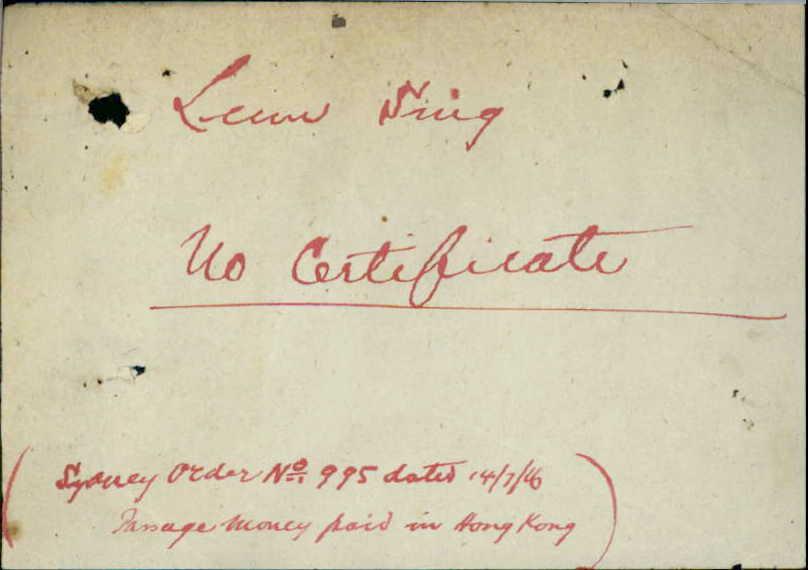 Leun Sing
No Certificate
(Sydney Order No 995 dated 14/7/16
Passage Money paid in Hong Kong)